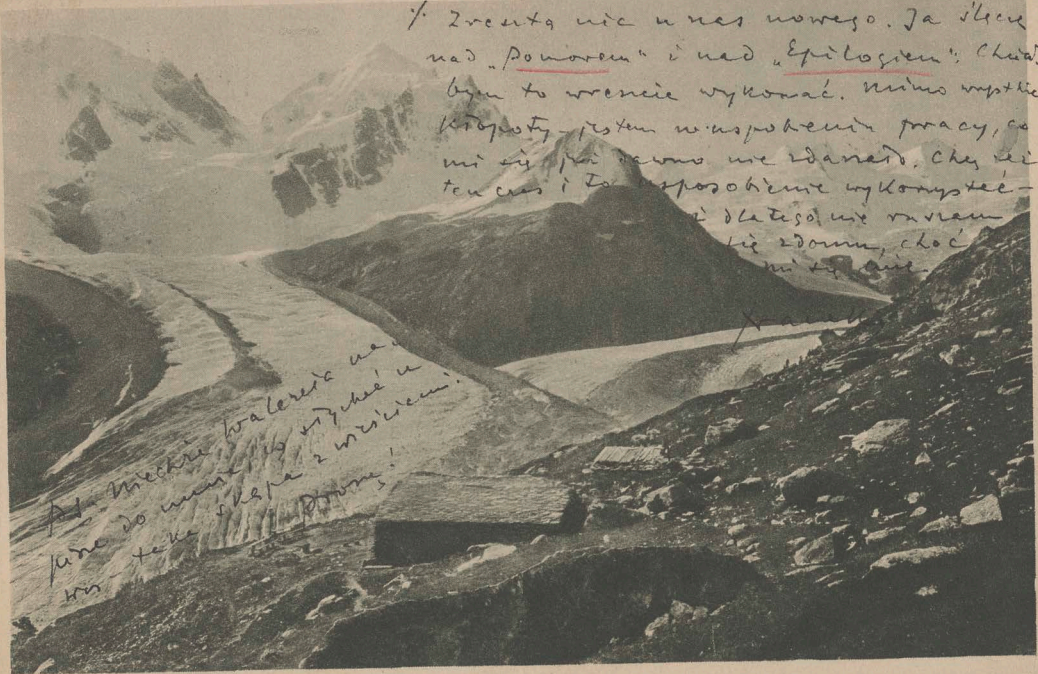 ‰ Zresztą nic u nas nowego. Ja ślęczę
nad „Pomorem" i nad „Epilogiem". Chciał
bym to wreszcie wykonać. Mimo wszystkie
kłopoty jestem w usposobieniu pracy, co
mi się już dawno nie zdarzało. Chcę też
ten czas i to usposobienie wykorzystać –
i dlatego nie ruszam
się z domu, choć
mi się
PS. Niechże Walercia
pisze do mnie co słychać u
was taka skąpa z wieściami.
Proszę!